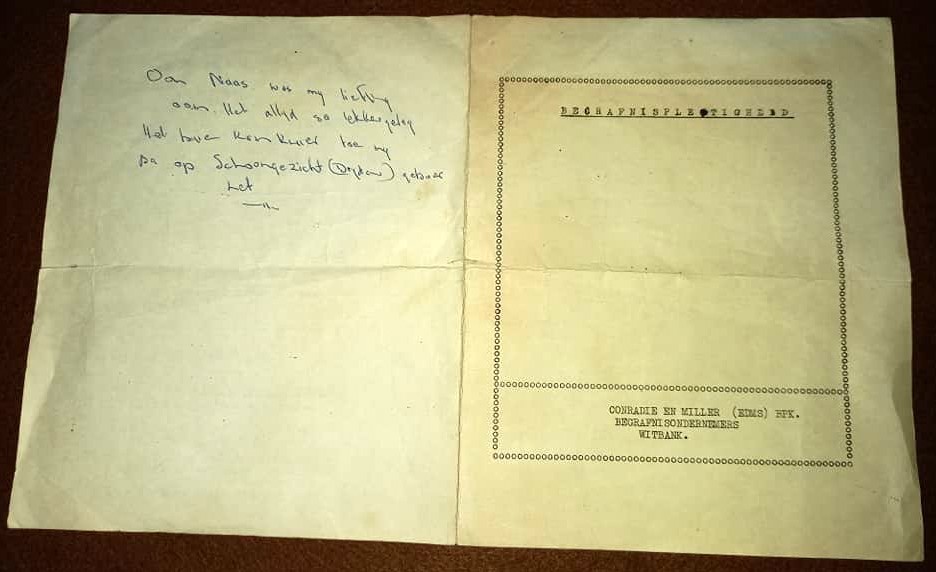 Oom Naas was my liefling
oom. Het altyd so lekker gelag
Het baie kom kuier toe my
pa op Schoongezicht geboer
het
BEGRAFNISPLEGTIGHEID
CONRADIE EN MILLER (EDMS) BPK.
BEGRAFNISONDERNEMERS
WITBANK.